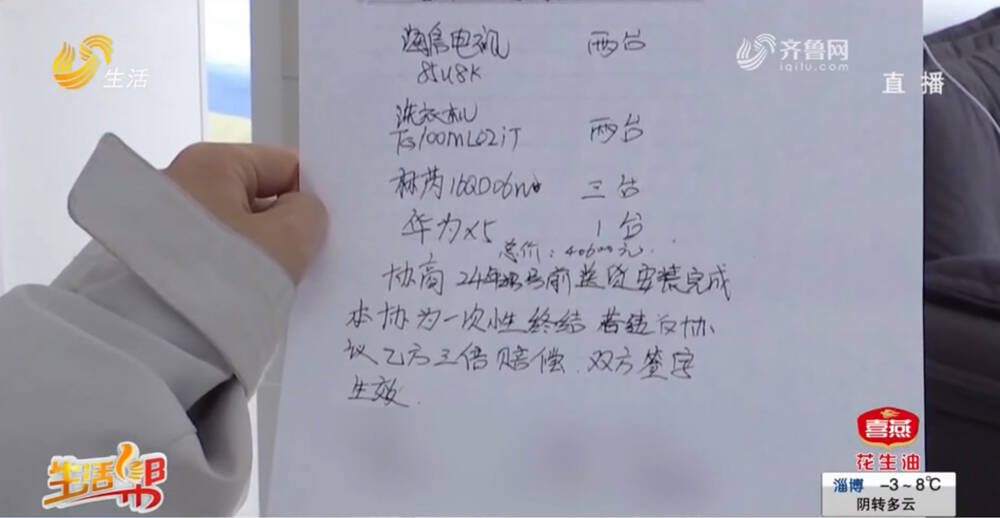 生活
齐鲁网
iqilu.com
直播
海信电视 两台
85U8K
洗衣机
TG100ML02iT 两台
三台
华为X5 1台
总价:40600元.
协商24年 号前送货安装完成
本协为一次性终结 若违反协
议乙方三倍赔偿.双方签字
生效.
生活帮
喜燕
花生油
淄博 -3~8℃
阴转多云